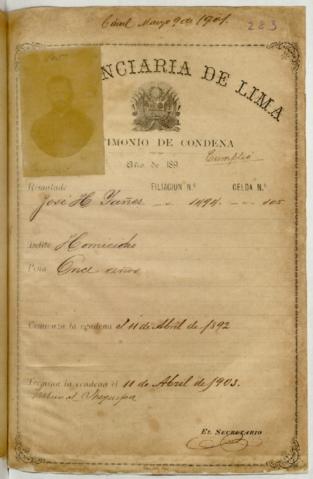 Marzo 9 de 1901.
223
NCIARIA DE LIMA
TIMONIO DE CONDENA
Año de 189
Cumplió
Rematado FILIACION N.° CELDA N.°
José H. Yañez 1494 105
Delito Homicidio
Pena Once años
Comienza la condena el 11 de Abril de 1892
Termina la condena el 11 de Abril de 1903.
EL SECRETARIO